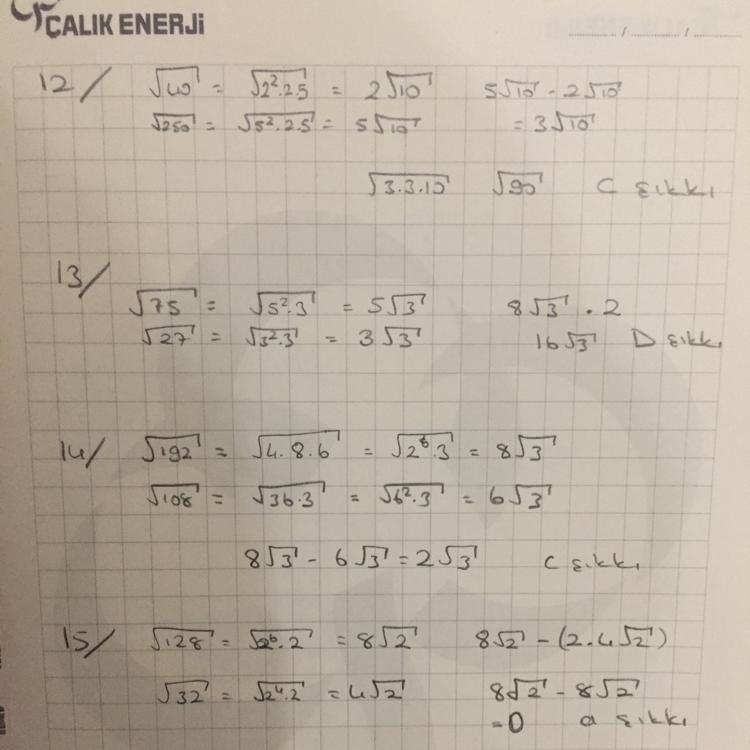 ÇALIK ENERJİ
...... / ...... / ......
12/ √40 = √2².2.5 = 2√10 5√10 - 2√10
√250 = √5².2.5 = 5√10 = 3√10
√3.3.10 √90 C şıkkı
13/
√75 = √5².3 = 5√3 8√3 . 2
√27 = √3².3 = 3√3 16√3 D şıkkı
14/ √192 = √4.8.6 = √2⁶.3 = 8√3
√108 = √36.3 = √6².3 = 6√3
8√3 - 6√3 = 2√3 C şıkkı
15/ √128 = √2⁶.2 = 8√2 8√2 - (2.4√2)
√32 = √2⁴.2 = 4√2 8√2 - 8√2
=0 a şıkkı